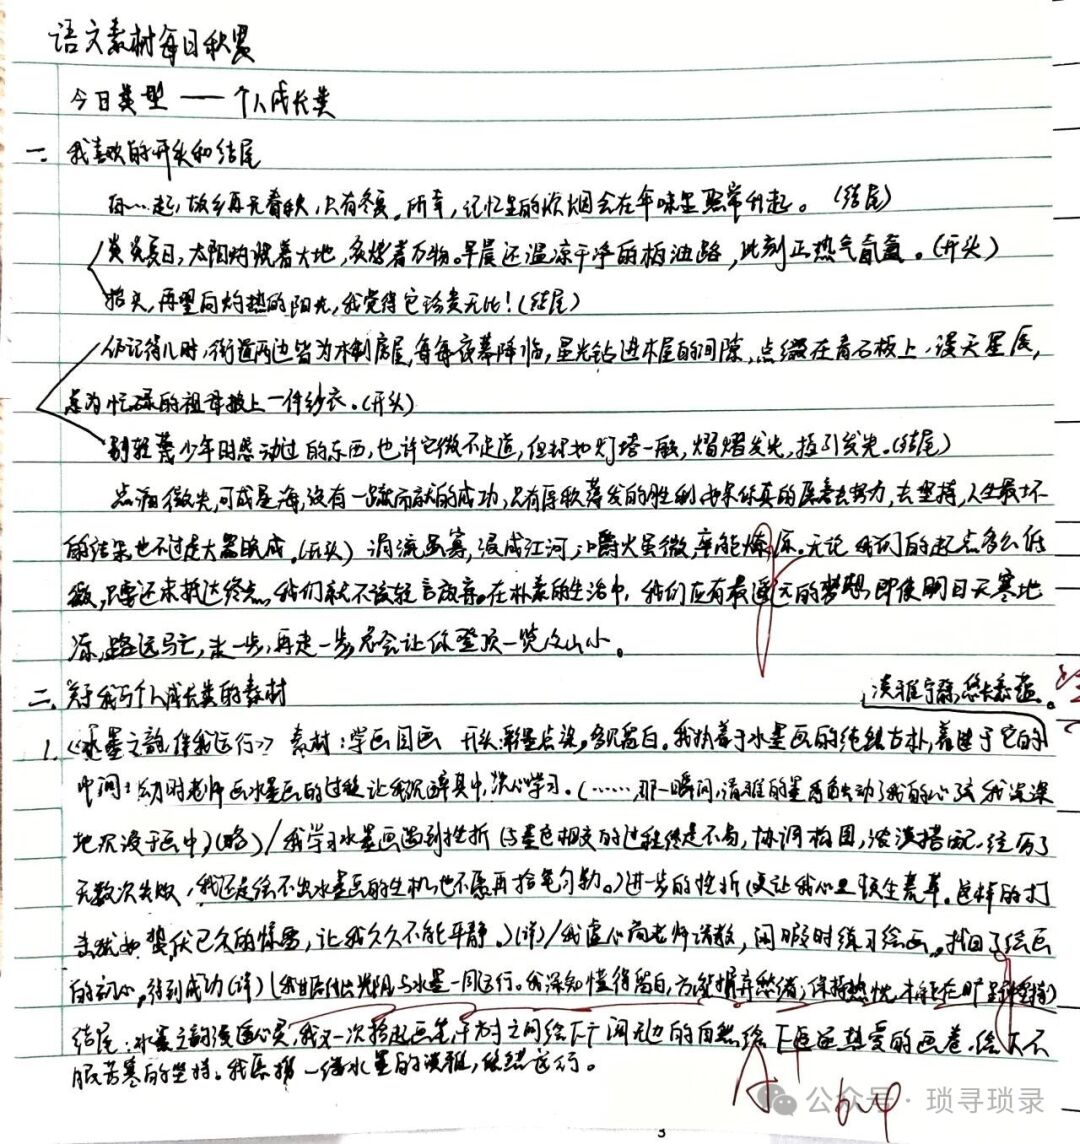 语文素材每日积累
今日类型——个人成长类
一、我喜欢的开头和结尾
自……起，故乡再无春秋，只有冬夏。所幸，记忆里的炊烟会在年味里照常升起。（结尾）
炎炎夏日，太阳灼烧着大地，炙烤着万物。早晨还温凉干净的柏油路，此刻正热气氤氲。（开头）
抬头，再望向灼热的阳光，我觉得它珍贵无比！（结尾）
仍记得儿时，街道两边皆为木制房屋，每每夜幕降临，星光钻进木屋的间隙，点缀在青石板上，漫天星辰，
总为忙碌的祖母披上一件纱衣。（开头）
别轻蔑少年时感动过的东西，也许它微不足道，但却如灯塔一般，熠熠发光，指引发光。（结尾）
点滴微光，可成星海，没有一蹴而就的成功，只有厚积薄发的胜利 如果你真的愿意去努力，去坚持，人生最坏
的结果也不过是大器晚成。（开头） 涓流虽寡，浸成江河，爝火虽微，卒能燎原。无论我们的起点多么低
微，只要还未抵达终点，我们就不该轻言放弃。在朴素的生活中，我们应有最遥远的梦想，即使明日天寒地
冻，路远马亡，走一步，再走一步，总会让你登顶一览众山小。
二、关于我写个人成长类的素材
淡雅宁静，悠长深蕴。
1.《水墨之韵，伴我远行》 素材：学画国画 开头：彩墨点染，多况留白。我执着于水墨画的纯朴古朴，着迷于它的
中间：幼时老师画水墨画的过程让我沉醉其中，决心学习。（……，那一瞬间，清雅的墨香触动了我的心弦 我深深
地沉浸于画中）（略）/我学习水墨画遇到挫折（与墨色相交的过程终是不易，协调构图，浓淡搭配，经历了
无数次失败，我还是绘不出水墨点的生机，也不愿再拾笔勾勒。）进一步的挫折（更让我心里顿生荒草。这样的打
击就如蛰伏已久的惊雷，让我久久不能平静。）（详）/我虚心向老师请教，闲暇时练习绘画，找回了绘画
的初心，得到成功（详）（我甘愿付出光阴与水墨一同远行。我深知懂得留白，方能摒弃愁绪，保持热忱，才能在旷野
结尾：水墨之韵浸透心灵，我又一次拾起画笔，于方寸之间绘下广阔无边的自然，绘下追逐热爱的画卷，绘下不
服苦寒的坚持。我愿携一缕水墨的淡雅，悠然远行。
A+
公众号 · 琐寻琐录
3